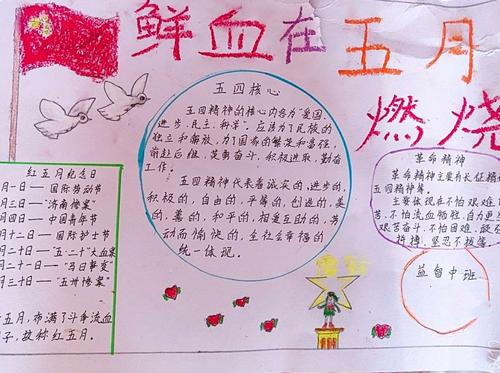 鲜血在五月
燃烧
五四核心
五四精神的核心内容为“爱国、
进步、民主、科学”，应该为了民族的
独立和解放，为了国家的繁荣和富强，
前赴后继，英勇奋斗，积极进取，勤奋
工作。
五四精神代表着诚实的，进步的，
积极的，自由的，平等的，创造的，美
的，善的，和平的，相爱互助的，劳
动而愉快的，全社会幸福的
统一体现。
红五月纪念日
月一日——国际劳动节
月三日——“济南惨案”
月四日——中国青年节
月十二日——国际护士节
月二十日——“五·二十”大血案
二十一日——“马日事变”
月三十日——“五卅惨案”
五月，布满了斗争流血
子，故称红五月。
革命精神
革命精神主要有长征精
五四精神等。
主要体现在不怕艰难
苦、不怕流血牺牲，自力更
艰苦奋斗，不怕困难，敢
拼搏，坚忍不拔等。
益智中班